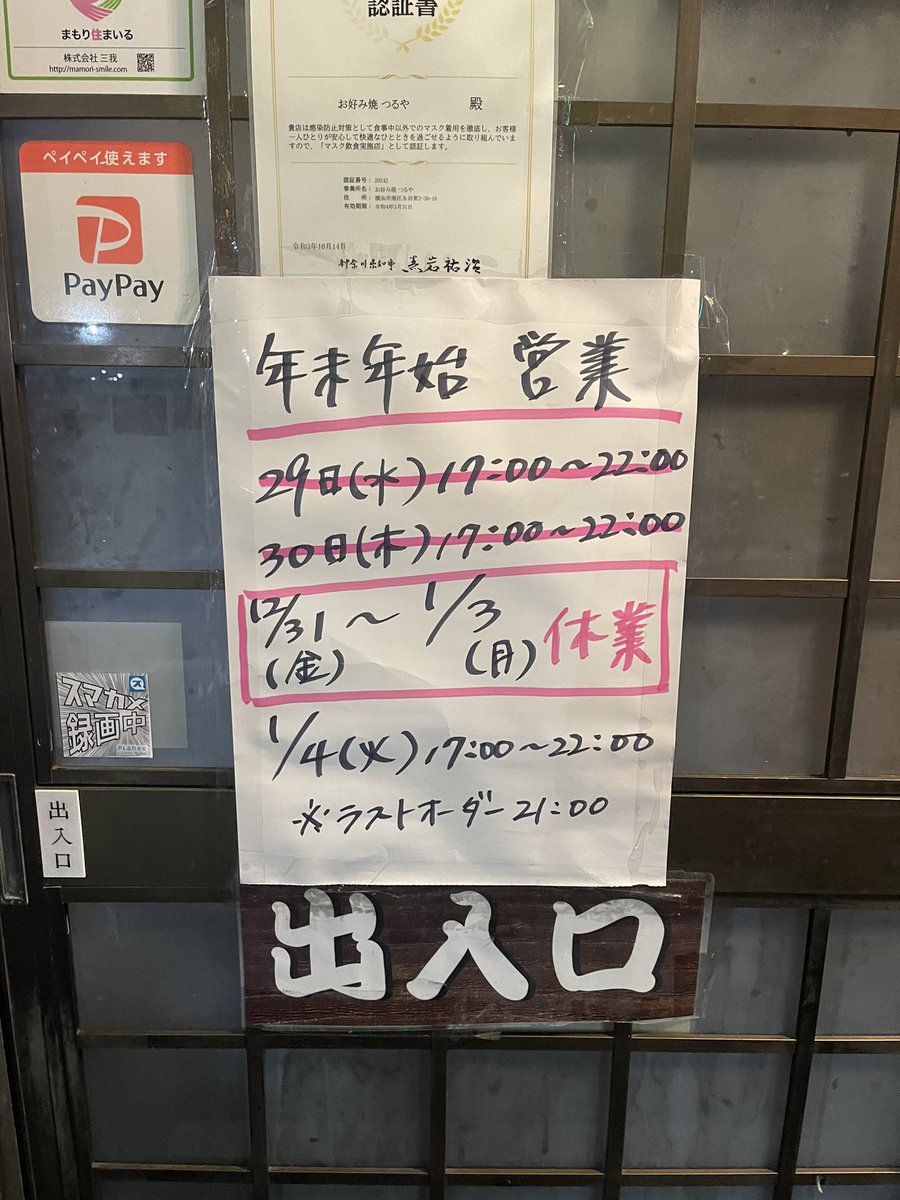 まもり住まいる
株式会社 三我
http://mamori-smile.com
認証書
お好み焼 つるや 殿
貴店は感染防止対策として食事中以外でのマスク着用を徹底し、お客様
一人ひとりが安心して快適なひとときを過ごせるように取り組んでいま
すので、「マスク飲食実施店」として認証します。
認証番号：20242
事業所名：お好み焼 つるや
住 所：横浜市南区永田東2-36-16
有効期限：令和4年3月31日
令和3年10月14日
神奈川県知事 黒岩祐治
ペイペイ使えます
PayPay
年末年始 営業
29日(水) 17:00～22:00
30日(木) 17:00～22:00
12/31～1/3 休業
(金) (月)
1/4(火) 17:00～22:00
※ラストオーダー 21:00
スマカメ
録画中
PLANEX
出入口
出入口